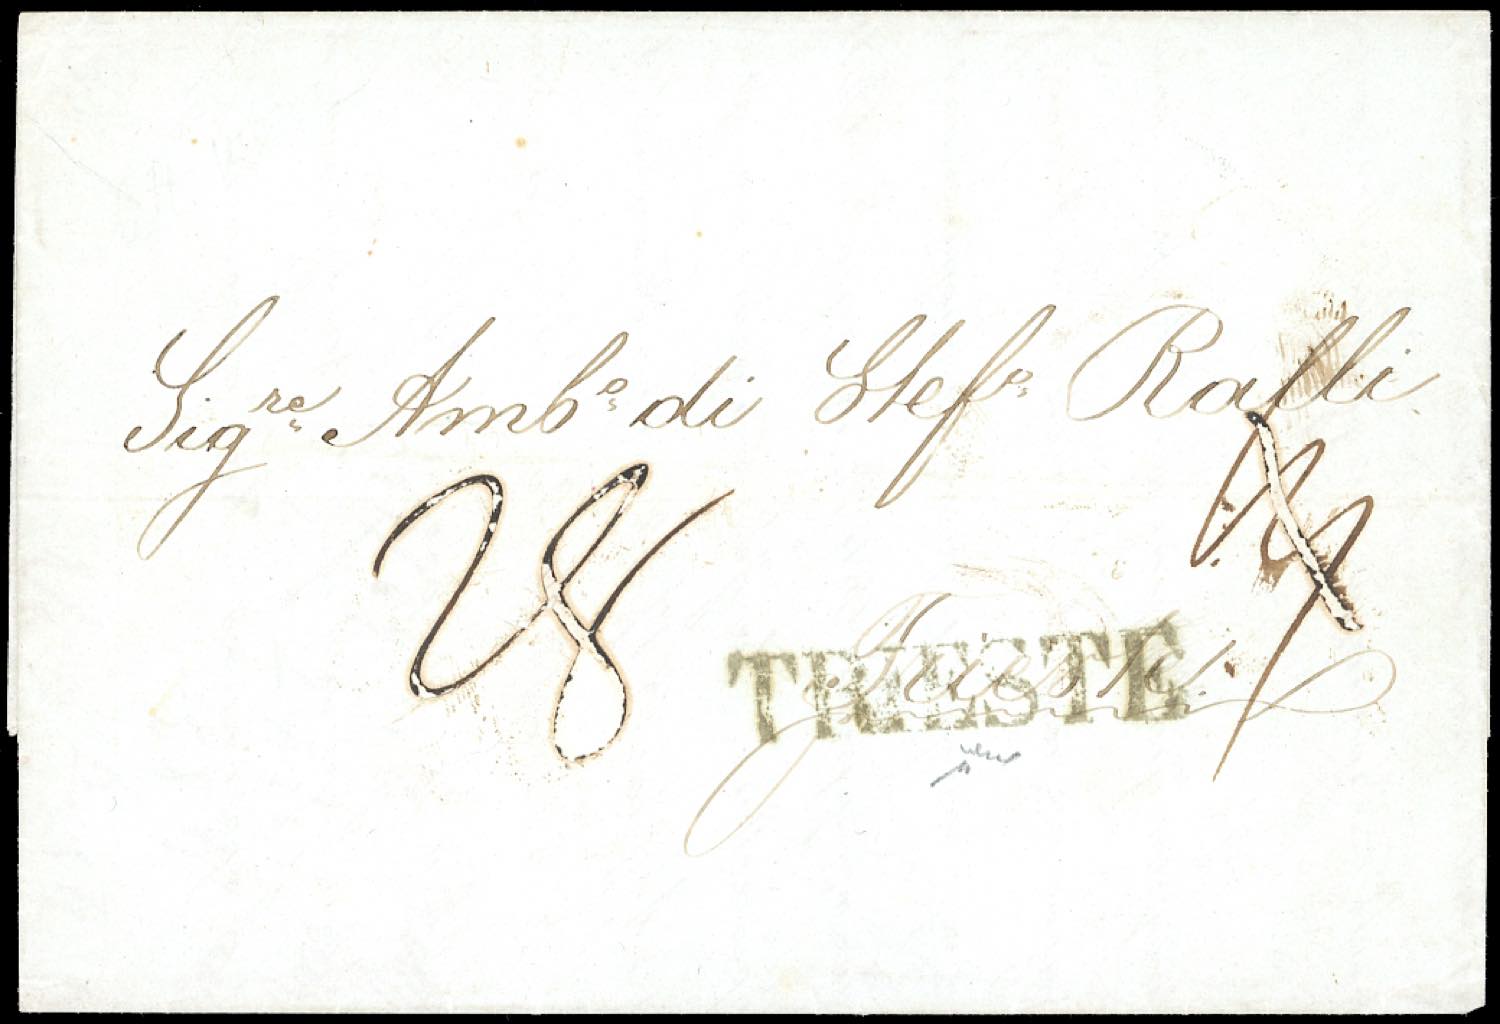 Sig.re Amb.o di Stef.o Ralli
28
Trieste
TRIESTE